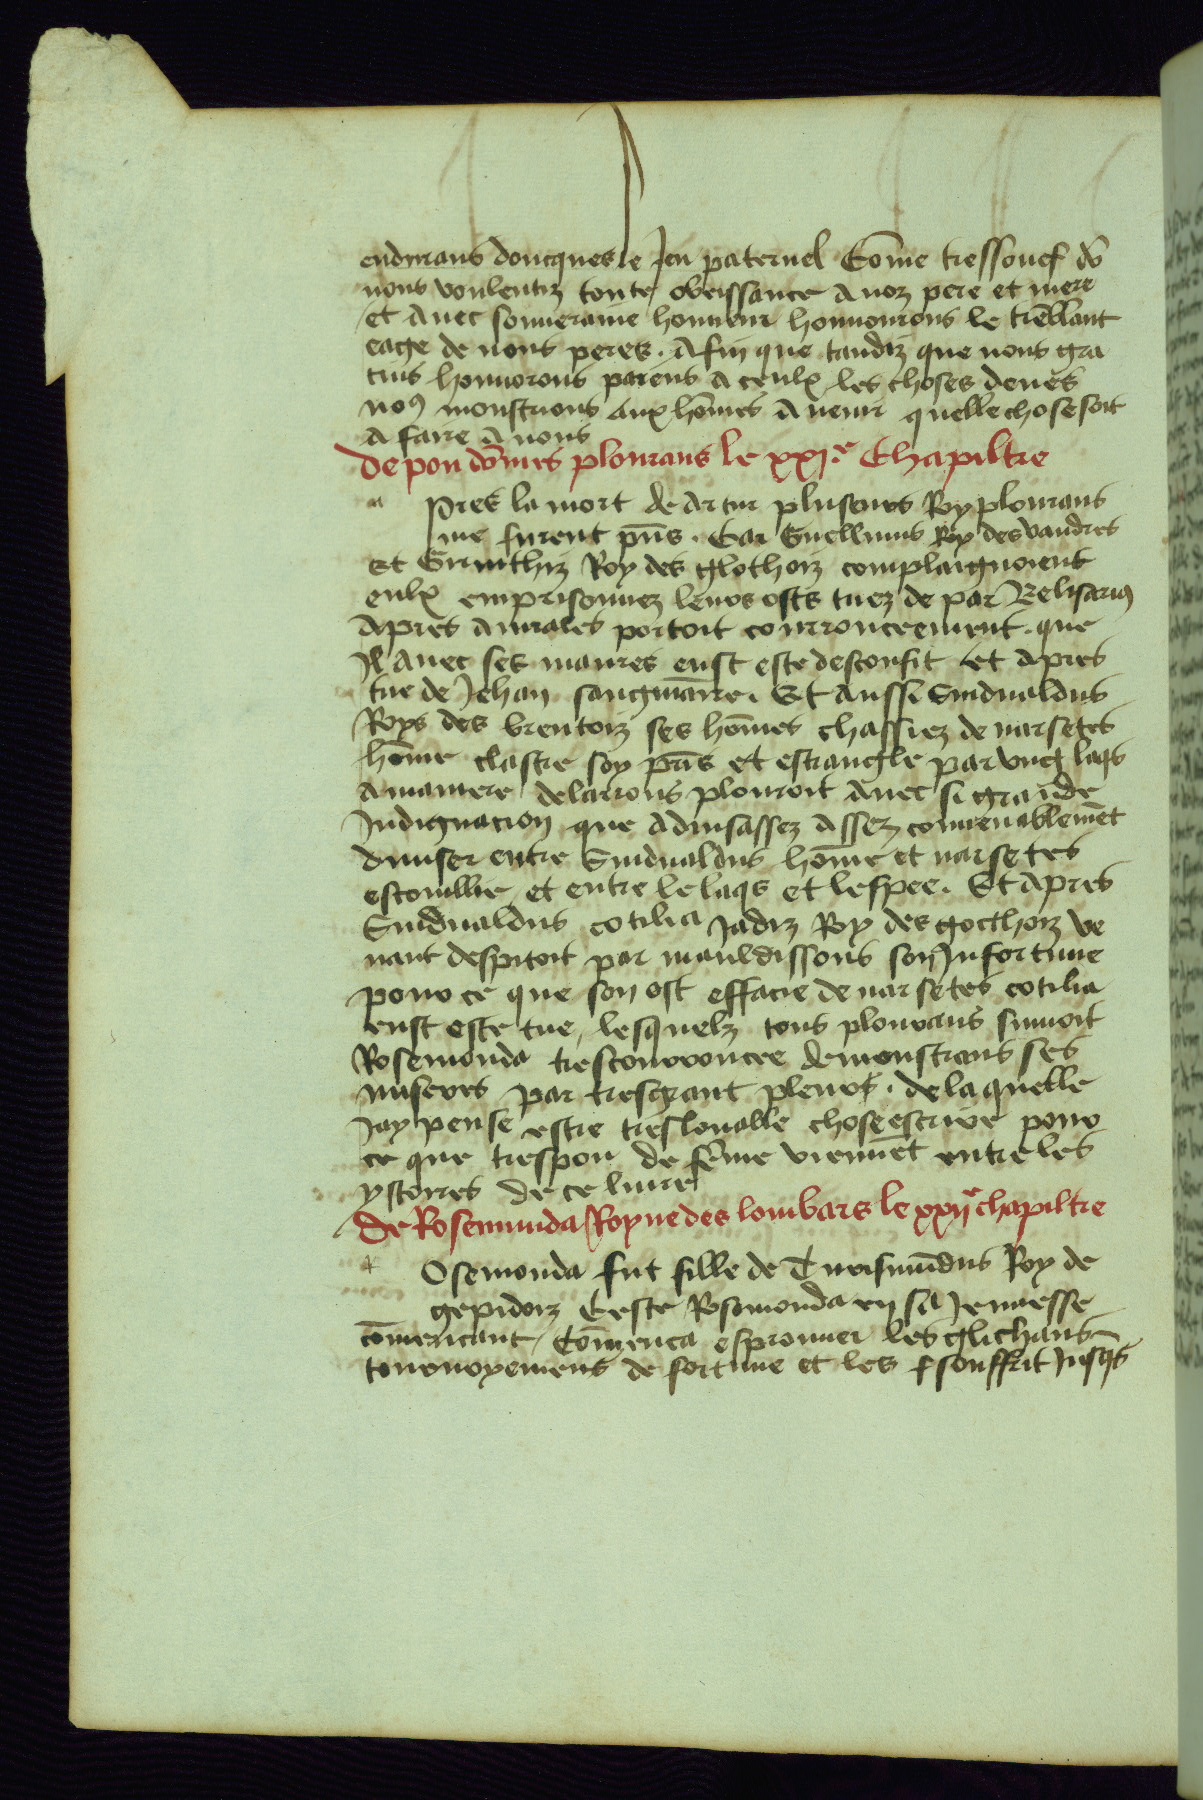 endurans doncques le Jou paternel Cõme tressouef dõ
nons voulentiz toute obeissance a noz pere et mere
et auec souueraine honneur honnourons le trẽblant
eage de nous peres. Afin que tandiz que nous gra
cius honnorons parens a ceulx les choses deues
noꝰ monstrons aux hõmes a venir quelle chose soit
a faire a nous
De pou dõmes plourans le xxi.e Chapiltre
a pres la mort de artur pluseurs Roy plourans
me furent pñs. Car Guellinus Roy des vandres
Et Gruuthiz Roy des glothoiz complaignoient
eulx emprisonnez leurs osts tuez de par Belisariꝰ
Apres amrales portoit courroucement. que
Il auec ses maures eust este desconfit et apres
tue de Jehan sanguinaire. Et aussi Sindualdus
Roys des brentoiz ses hõmes chassiez de narsetes
hõme clastre soy pñs et estrangle par vng laqs
a maniere de larrons plouroit auec si grande
Indignacion que aduisassez assez conuenablemẽt
diuiser entre Sindualdus hõme et narsetes
escouillie et entre le laqs et lespee. Et apres
Sindualdus cotilia Jadiz Roy des gocthoiz ve
nant despitoit par mauldissons son Infortune
pour ce que son ost efface de narsetes cotilia
eust este tue, lesquelz tous plourans suiuoit
Rosemonda trescourroucee demonstrans ses
miseres par tresgrant pleurs. de laquelle
Jay pense estre treslouable chose escrire pour
ce que trespou de fẽme viennẽt entre les
ystoires de ce liure
De Rosemunda Royne des lombars le xxii.e chapiltre
r Osemonda fut fille de Turismũdus Roy de
gepidoiz Ceste Rosomonda en sa Jeunesse
cõmencant, Cõmenca esprouuer les glichans
tournoyemens de fortune et les ꝑsouffrit Jusqs